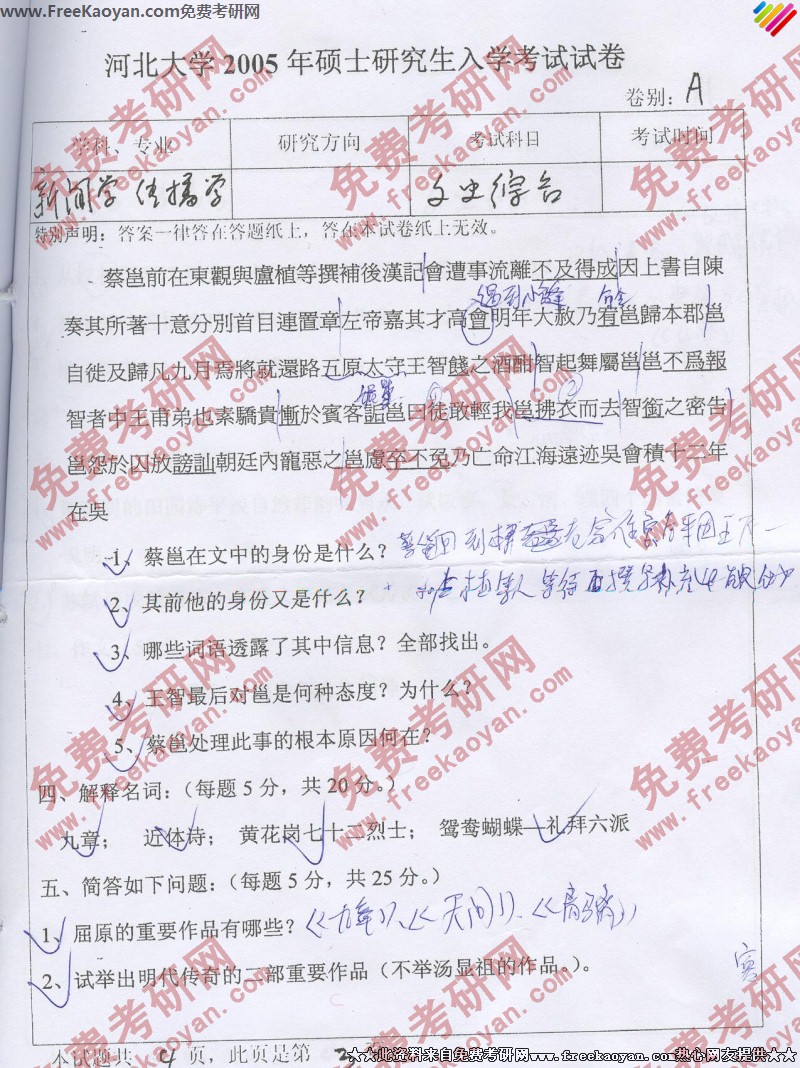 www.FreeKaoyan.com免费考研网
www.FreeKaoyan.com
河北大学2005年硕士研究生入学考试试卷
卷别：A
学科、专业 研究方向 考试科目 考试时间
新闻学 传播学 文史综合
特别声明：答案一律答在答题纸上，答在本试卷纸上无效。
蔡邕前在東觀與盧植等撰補後漢記會遭事流離不及得成因上書自陳
奏其所著十意分別首目連置章左帝嘉其才高會明年大赦乃宥邕歸本郡邕
自徙及歸凡九月焉將就還路五原太守王智餞之酒酣智起舞屬邕邕不爲報
智者中王甫弟也素驕貴慚於賓客詬邕曰徒敢輕我邕拂衣而去智銜之密告
邕怨於囚放謗訕朝廷內寵惡之邕慮卒不免乃亡命江海遠迹吳會積十二年
在吳
1、蔡邕在文中的身份是什么？
2、其前他的身份又是什么？
3、哪些词语透露了其中信息？全部找出。
4、王智最后对邕是何种态度？为什么？
5、蔡邕处理此事的根本原因何在？
四、解释名词：（每题5分，共20分。）
九章； 近体诗； 黄花岗七十二烈士； 鸳鸯蝴蝶—礼拜六派
五、简答如下问题：（每题5分，共25分。）
1、屈原的重要作品有哪些？《九章》、《天问》、《离骚》
2、试举出明代传奇的二部重要作品（不举汤显祖的作品。）。
本试题共 4 页，此页是第 3
★★此资料来自免费考研网www.freekaoyan.com热心网友提供★★
免费考研网
www.freekaoyan.com